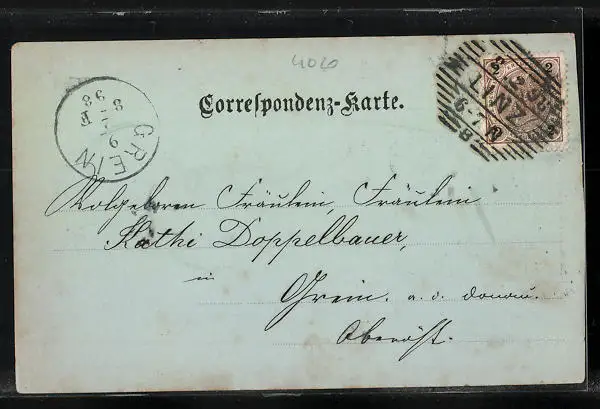 4020
Correspondenz-Karte.
GREIN
98
LINZ
2
Wolgeboren Fräulein, Fräulein
Kathi Doppelbauer,
in
Grein. a. d. Donau.
Oberöst.